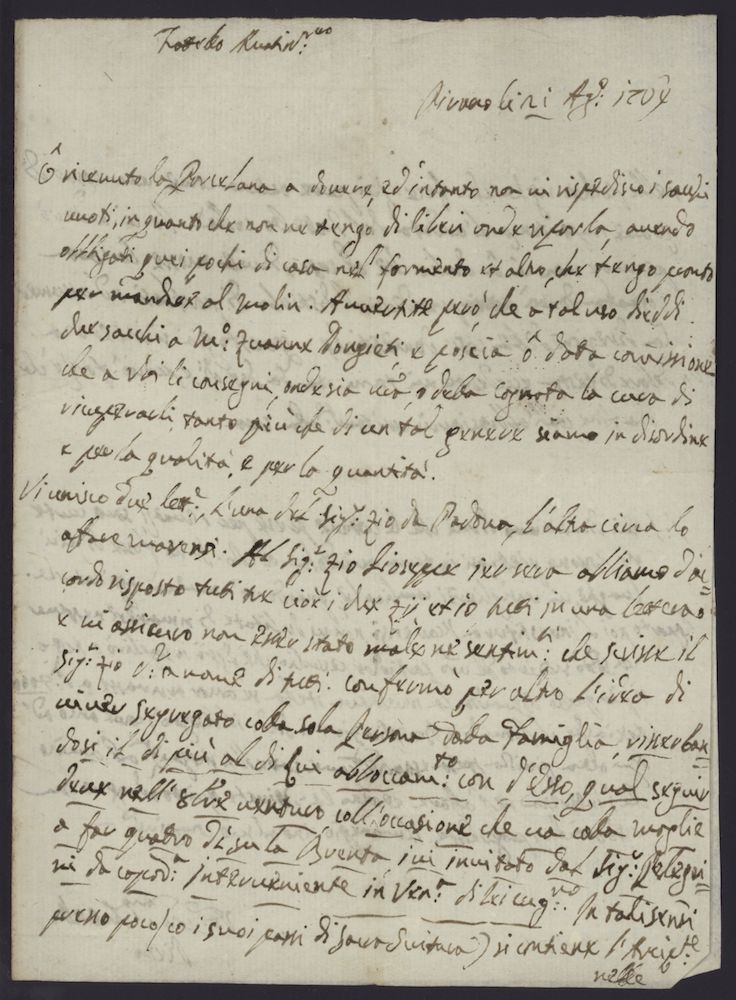 Fratello Amatis.mo
li 21 Ag.o 1704
Ô ricevuto la Porcelana a dovere, ed intanto non vi rispedisco i sacchi
vuoti, in quanto che non ne tengo di liberi onde riporla, avendo
obbligati quei pochi di casa nel formento et altro, che tengo pronto
per mandar al molin. Avvertite però che a tal uso diedi
due sacchi a M.o Zuanne, e poscia ô data commissione
che a Voi li consegni, onde sia, o della Cognata la cura di
riceverli, tanto più che di un tal genere siamo in disordine
e per la qualità, e per la quantità.
Vi unisco due lett.e, l'una del Sig.r Zio da Padova, l'altra circa lo
affare. Al Sig.r Zio Gioseppe jeri sera abbiamo d'ac=
cordo risposto tutti tre cioè i due Zij et io tutti in una lettera
e vi assicuro non esser stato male ne sentim.ti che scrisse il
Sig.r Zio a nome di tutti. Confermò per altro l'idea di
viver segregato colla sola Persona dalla Famiglia, riserban=
dosi il di più al di lui abboccam.to con d'Esso, qual seguir
deve nell' 8bre venturo coll'occasione che và colla moglie
a far su la Brenta, ivi invitato dal Sig.r Pelegri=
ni da Interveniente in Ven.a di lei cug.no In tali sensi
poco (co i suoi passi di Sacra Scritura) si contiene l'Arcip.te
nelle